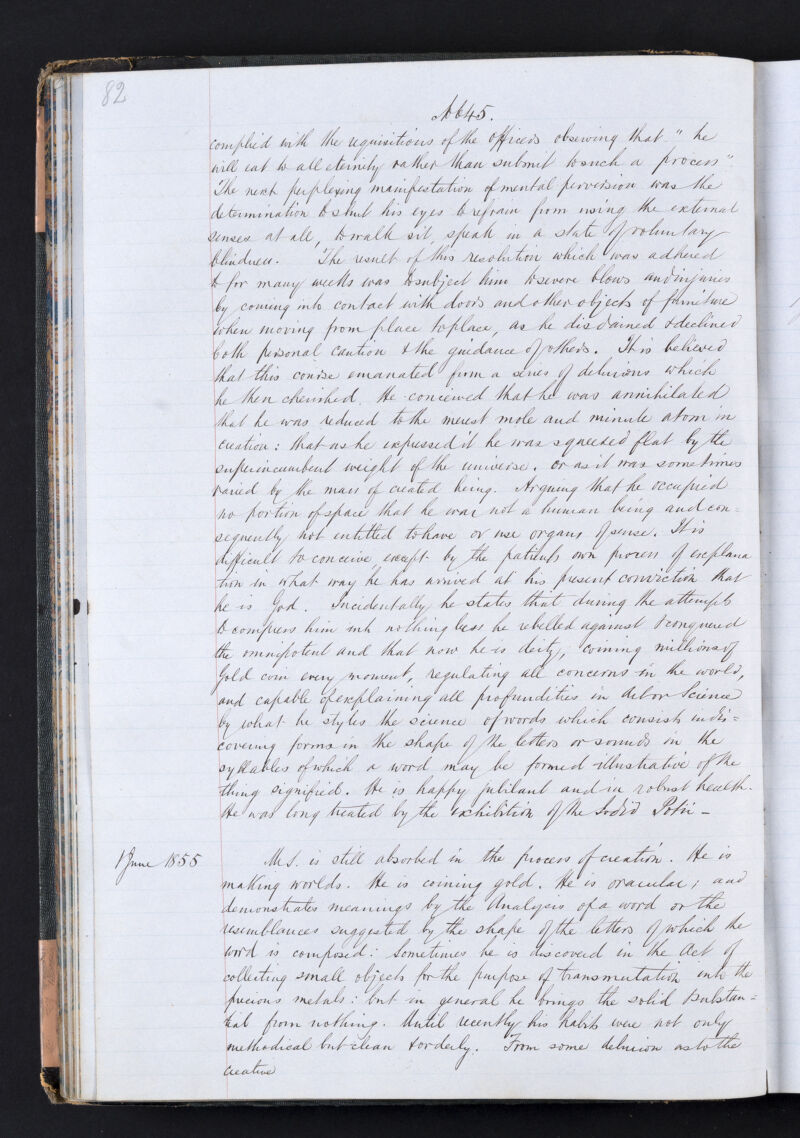 82
No 645.
complied with the requisitions of the officers observing that "he
will eat to all eternity rather than submit to such a process"
The next perplexing manifestation of mental perversion was the
determination to shut his eyes to refrain from using the external
senses at all, to walk sit, speak in a state of voluntary
blindness. The result of this resolution which was adhered
to for many weeks was to subject him to severe blows and injuries
by coming into contact with doors and other objects of furniture
when moving from place to place, as he disdained & declined
both personal caution & the guidance of others. It is believed
that this course emanated from a series of delusions which
he then cherished. He conceived that he was annihilated
that he was reduced to the merest mole and minute atom in
creation: that as he expressed it he was squeezed flat by the
superincumbent weight of the universe. or as it was sometimes
varied by the mass of created being. Arguing that he occupied
no portion of space that he was not a human being and con=
sequently not entitled to have or use organs of sense. It is
difficult to conceive except by the patients own process of explana
tion in what way he has arrived at his present conviction that
he is God. Incidentally he states that during the attempts
to compress him into nothingless he rebelled against & conquered
the omnipotent and that now he is deity, coining millions of
Gold coin every moment, regulating all concerns in the world,
and capable of explaining all profundities in Art or Science
by what he styles the science of words which consists in dis=
covering forms in the shape of the letters or sounds in the
syllables of which a word may be formed illustrative of the
thing signified. He is happy jubilant and in robust health.
He was long treated by the exhibition of the Iodid Potii -
1 June 1855 M.S. is still absorbed in the process of creation. He is
making worlds. He is coining gold. He is oracular; and
demonstrates meanings by the Analysis of a word or the
resemblances suggested by the shape of the letters of which the
word is composed: Sometimes he is discovered in the Act of
collecting small objects for the purpose of transmutation into the
precious metals: but in general he brings the solid & substan=
tial from nothing. Until recently his habits were not only
methodical but clean & orderly. From some delusion as to the
creative